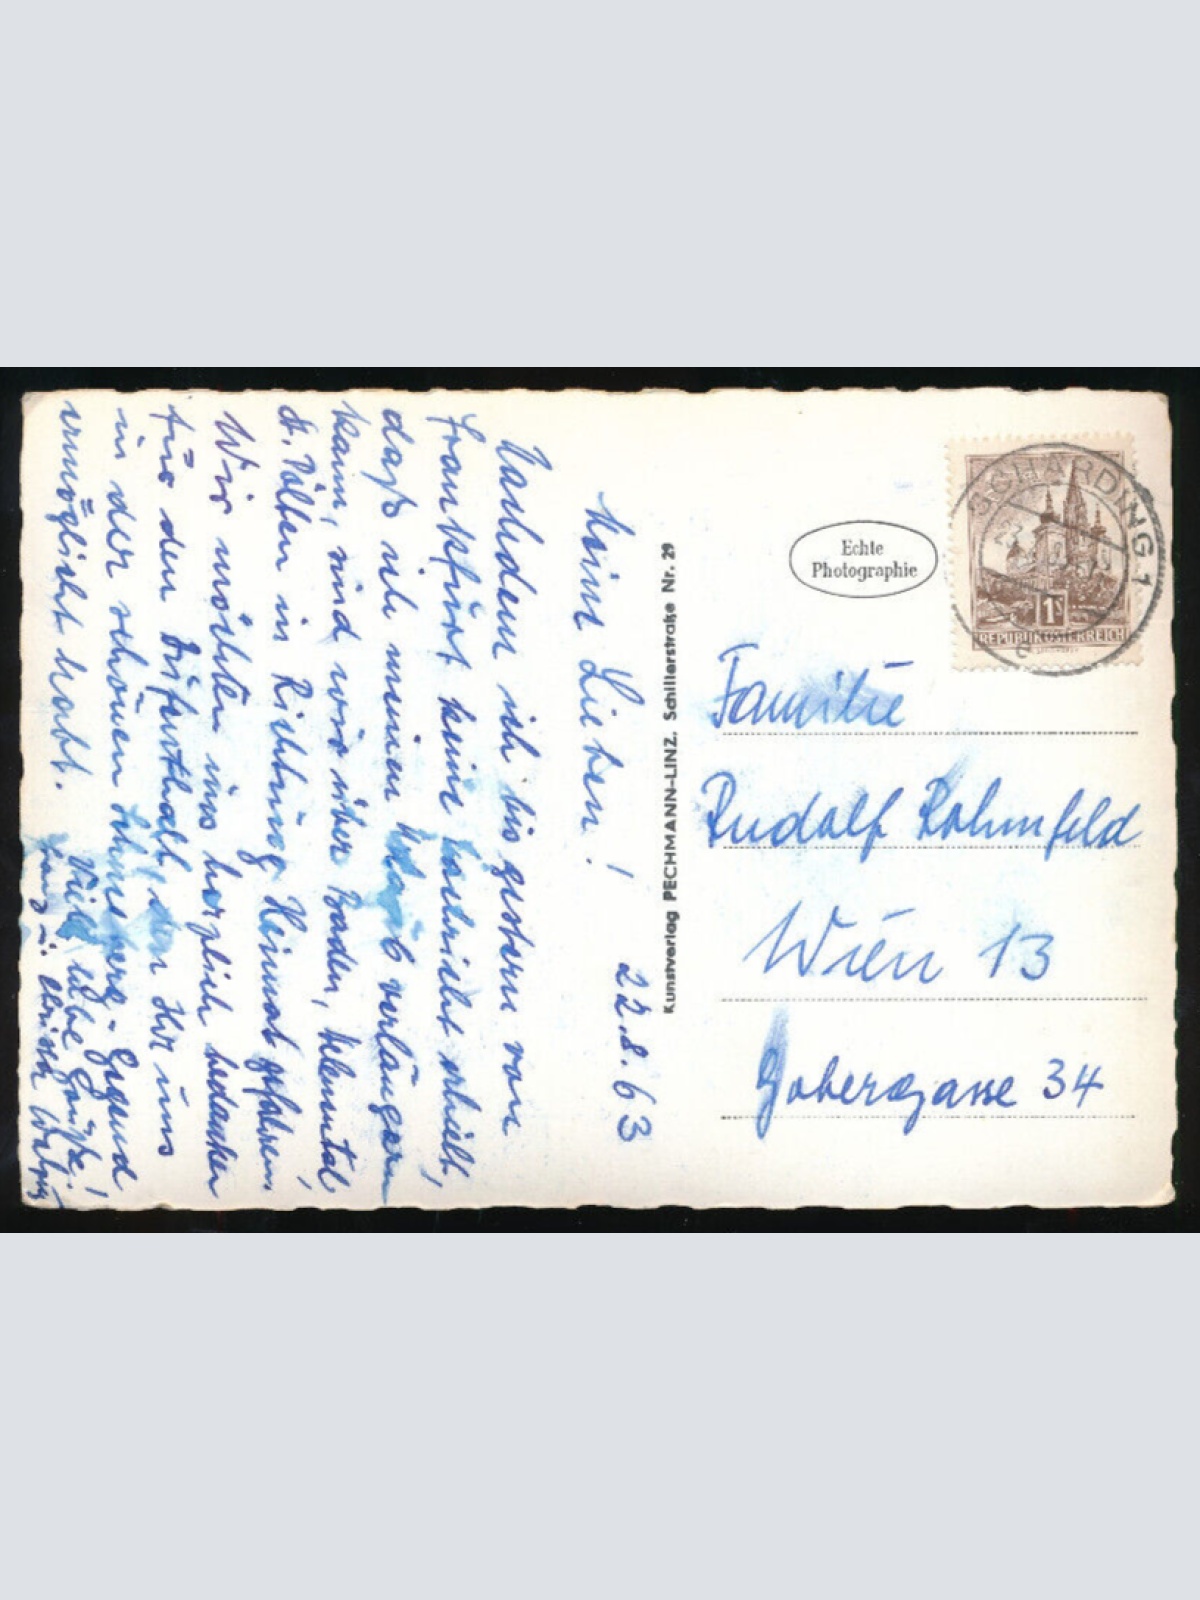 Meine Lieben! 22.8.63
Nachdem ich bis gestern von
Frankfurt keine Nachricht erhielt,
daß ich meinen Urlaub verlängern
kann, sind wir über Baden, Helenental,
St. Pölten in Richtung Heimat gefahren.
Wir möchten uns herzlich bedanken
für den Aufenthalt, den Ihr uns
in der schönen Schneeberg-Gegend
ermöglicht habt.
Viele liebe Grüße!
Echte
Photographie
SCHÄRDING 1
1S
REPUBLIK ÖSTERREICH
Kunstverlag PECHMANN-LINZ, Schillerstraße Nr. 29
Familie
Rudolf Rohmfeld
Wien 13
Gobergasse 34